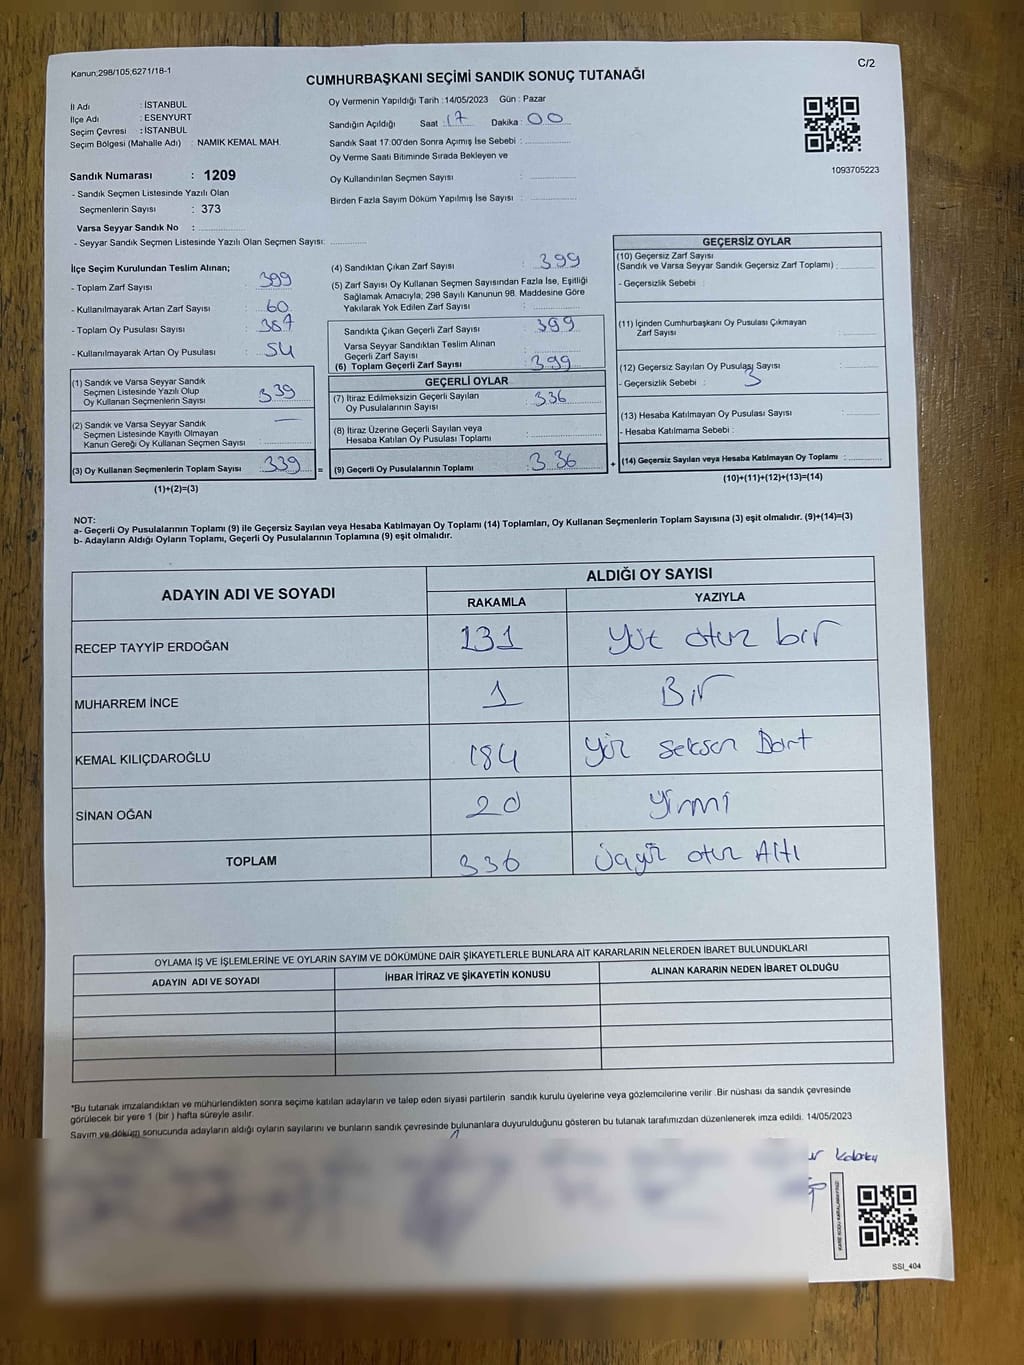 Kanun;298/105;6271/18-1
C/2
CUMHURBAŞKANI SEÇİMİ SANDIK SONUÇ TUTANAĞI
İl Adı : İSTANBUL
İlçe Adı : ESENYURT
Seçim Çevresi : İSTANBUL
Seçim Bölgesi (Mahalle Adı) : NAMIK KEMAL MAH.
Sandık Numarası : 1209
- Sandık Seçmen Listesinde Yazılı Olan
Seçmenlerin Sayısı : 373
Varsa Seyyar Sandık No :
- Seyyar Sandık Seçmen Listesinde Yazılı Olan Seçmen Sayısı:
Oy Vermenin Yapıldığı Tarih :14/05/2023 Gün : Pazar
Sandığın Açıldığı Saat : 17 Dakika : 00
Sandık Saat 17:00'den Sonra Açımış İse Sebebi :
Oy Verme Saati Bitiminde Sırada Bekleyen ve
Oy Kullandırılan Seçmen Sayısı :
Birden Fazla Sayım Döküm Yapılmış İse Sayısı :
1093705223
İlçe Seçim Kurulundan Teslim Alınan;
- Toplam Zarf Sayısı : 399
- Kullanılmayarak Artan Zarf Sayısı : 60
- Toplam Oy Pusulası Sayısı :
- Kullanılmayarak Artan Oy Pusulası : 54
(1) Sandık ve Varsa Seyyar Sandık
Seçmen Listesinde Yazılı Olup
Oy Kullanan Seçmenlerin Sayısı : 339
(2) Sandık ve Varsa Seyyar Sandık
Seçmen Listesinde Kayıtlı Olmayan
Kanun Gereği Oy Kullanan Seçmen Sayısı : —
(3) Oy Kullanan Seçmenlerin Toplam Sayısı : 339 =
(1)+(2)=(3)
(4) Sandıktan Çıkan Zarf Sayısı : 399
(5) Zarf Sayısı Oy Kullanan Seçmen Sayısından Fazla İse, Eşitliği
Sağlamak Amacıyla, 298 Sayılı Kanunun 98. Maddesine Göre
Yakılarak Yok Edilen Zarf Sayısı :
Sandıkta Çıkan Geçerli Zarf Sayısı : 399
Varsa Seyyar Sandıktan Teslim Alınan
Geçerli Zarf Sayısı :
(6) Toplam Geçerli Zarf Sayısı : 399
GEÇERLİ OYLAR
(7) İtiraz Edilmeksizin Geçerli Sayılan
Oy Pusulalarının Sayısı : 336
(8) İtiraz Üzerine Geçerli Sayılan veya
Hesaba Katılan Oy Pusulası Toplamı :
(9) Geçerli Oy Pusulalarının Toplamı : 336 +
GEÇERSİZ OYLAR
(10) Geçersiz Zarf Sayısı
(Sandık ve Varsa Seyyar Sandık Geçersiz Zarf Toplamı) :
- Geçersizlik Sebebi :
(11) İçinden Cumhurbaşkanı Oy Pusulası Çıkmayan
Zarf Sayısı :
(12) Geçersiz Sayılan Oy Pusulası Sayısı :
- Geçersizlik Sebebi : 3
(13) Hesaba Katılmayan Oy Pusulası Sayısı :
- Hesaba Katılmama Sebebi :
(14) Geçersiz Sayılan veya Hesaba Katılmayan Oy Toplamı :
(10)+(11)+(12)+(13)=(14)
NOT:
a- Geçerli Oy Pusulalarının Toplamı (9) ile Geçersiz Sayılan veya Hesaba Katılmayan Oy Toplamı (14) Toplamları, Oy Kullanan Seçmenlerin Toplam Sayısına (3) eşit olmalıdır. (9)+(14)=(3)
b- Adayların Aldığı Oyların Toplamı, Geçerli Oy Pusulalarının Toplamına (9) eşit olmalıdır.
ADAYIN ADI VE SOYADI
ALDIĞI OY SAYISI
RAKAMLA YAZIYLA
RECEP TAYYİP ERDOĞAN 131 Yüz otuz bir
MUHARREM İNCE 1 Bir
KEMAL KILIÇDAROĞLU 184 Yüz seksen Dört
SİNAN OĞAN 20 Yirmi
TOPLAM 336 Üçyüz otuz Altı
OYLAMA İŞ VE İŞLEMLERİNE VE OYLARIN SAYIM VE DÖKÜMÜNE DAİR ŞİKAYETLERLE BUNLARA AİT KARARLARIN NELERDEN İBARET BULUNDUKLARI
ADAYIN ADI VE SOYADI İHBAR İTİRAZ VE ŞİKAYETİN KONUSU ALINAN KARARIN NEDEN İBARET OLDUĞU
"Bu tutanak imzalandıktan ve mühürlendikten sonra seçime katılan adayların ve talep eden siyasi partilerin sandık kurulu üyelerine veya gözlemcilerine verilir .Bir nüshası da sandık çevresinde
görülecek bir yere 1 (bir ) hafta süreyle asılır.
Sayım ve döküm sonucunda adayların aldığı oyların sayılarını ve bunların sandık çevresinde bulunanlara duyurulduğunu gösteren bu tutanak tarafımızdan düzenlenerek imza edildi. 14/05/2023
SSI_404